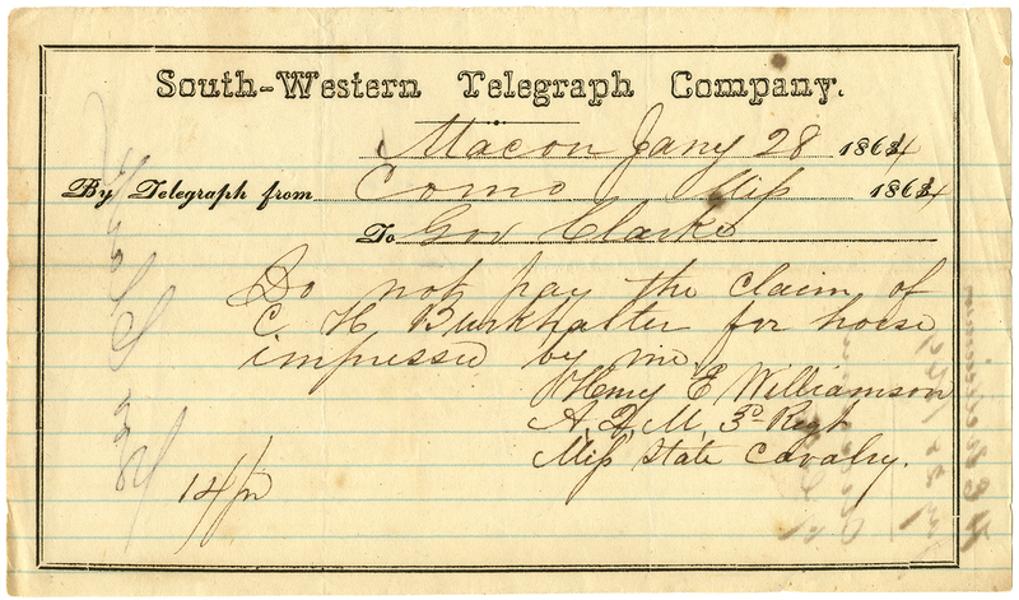 South-Western Telegraph Company.
Macon Jany 28 1864
By Telegraph from Como Miss 1864
To Gov Clarke
Do not pay the claim of
C H Burkhalter for horse
impressed by me
Henry E Williamson
A. Q. M. 3D Regt
Miss State Cavalry.
14/pd